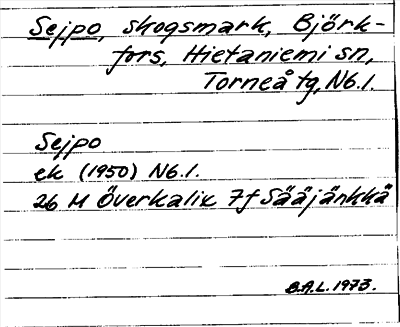 Sejpo, skogsmark, Björk-
fors, Hietaniemi sn,
Torneå tg, Nb.l.
Sejpo
ek (1950) Nb.l.
26 M Överkalix 7f Sääjänkkä
B.A.L. 1973.